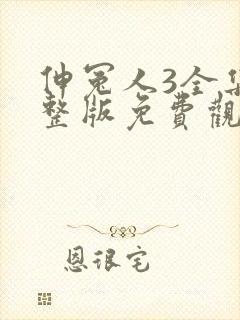 伸冤人3全集
整版免費觀
恩很宅